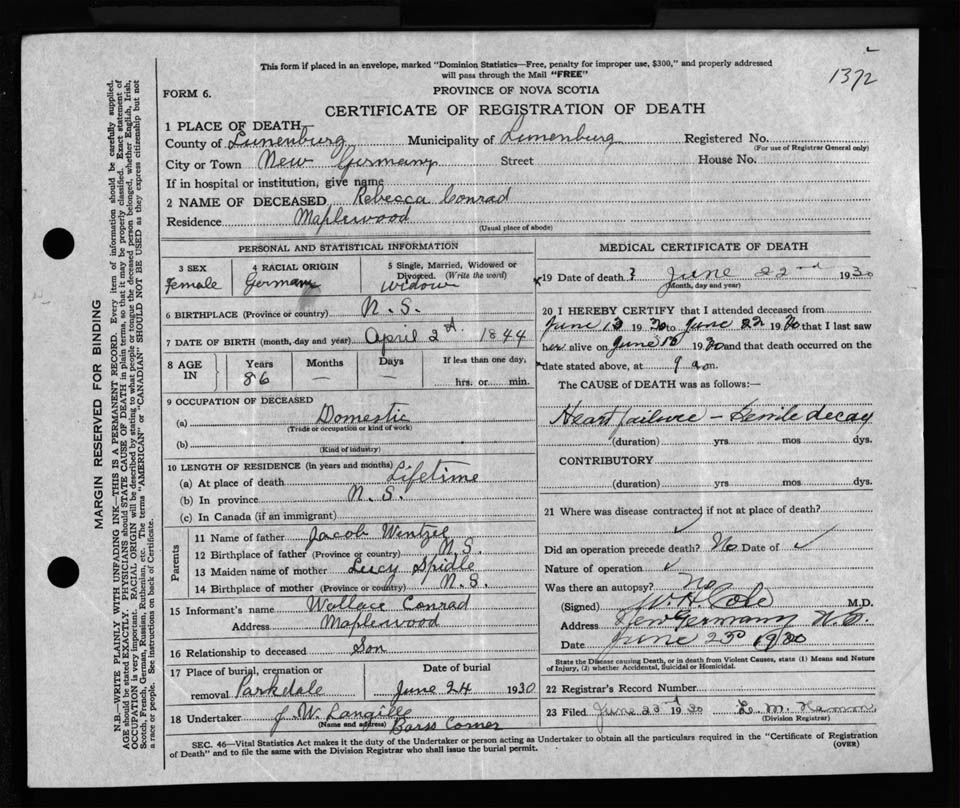 This form if placed in an envelope, marked "Dominion Statistics—Free, penalty for improper use, $300," and properly addressed
will pass through the Mail "FREE"
1372
FORM 6.
PROVINCE OF NOVA SCOTIA
CERTIFICATE OF REGISTRATION OF DEATH
1 PLACE OF DEATH—
County of Lunenburg Municipality of Lunenburg Registered No.
(For use of Registrar General only)
City or Town New Germany Street House No.
If in hospital or institution, give name
2 NAME OF DECEASED Rebecca Conrad
Residence Maplewood
(Usual place of abode)
PERSONAL AND STATISTICAL INFORMATION
3 SEX 4 RACIAL ORIGIN 5 Single, Married, Widowed or
Divorced. (Write the word)
Female German Widow
6 BIRTHPLACE (Province or country) N.S.
7 DATE OF BIRTH (month, day and year) April 2d. 1844
8 AGE IN Years Months Days If less than one day,
86 — — hrs. or min.
9 OCCUPATION OF DECEASED
(a) Domestic
(Trade or occupation or kind of work)
(b)
(Kind of industry)
10 LENGTH OF RESIDENCE (in years and months)
(a) At place of death Lifetime
(b) In province N.S.
(c) In Canada (if an immigrant)
Parents
11 Name of father Jacob Wentzel
12 Birthplace of father (Province or country) N.S.
13 Maiden name of mother Lucy Spidle
14 Birthplace of mother (Province or country) N.S.
15 Informant's name Wallace Conrad
Address Maplewood
16 Relationship to deceased Son
17 Place of burial, cremation or Date of burial
removal Parkdale June 24 1930
18 Undertaker J. W. Langille
(Name and address) Barss Corner
MEDICAL CERTIFICATE OF DEATH
19 Date of death? June 22nd 1930
(Month, day and year)
20 I HEREBY CERTIFY that I attended deceased from
June 13 1930 to June 22 1930 that I last saw
her alive on June 1930 and that death occurred on the
date stated above, at 9 a.m.
The CAUSE of DEATH was as follows:—
Heart failure – Senile decay
(duration) yrs mos dys.
CONTRIBUTORY
(duration) yrs mos dys.
21 Where was disease contracted if not at place of death?
Did an operation precede death? No Date of ✓
Nature of operation ✓
Was there an autopsy? No
(Signed) W. H. Cole M.D.
Address New Germany N.S.
Date June 23d 1930
State the Disease causing Death, or in death from Violent Causes, state (1) Means and Nature
of Injury, (2) whether Accidental, Suicidal or Homicidal.
22 Registrar's Record Number
23 Filed June 23d 1930 L. M.
(Division Registrar)
SEC. 46—Vital Statistics Act makes it the duty of the Undertaker or person acting as Undertaker to obtain all the particulars required in the "Certificate of Registration
of Death" and to file the same with the Division Registrar who shall issue the burial permit. (OVER)
MARGIN RESERVED FOR BINDING
N.B.—WRITE PLAINLY, WITH UNFADING INK—THIS IS A PERMANENT RECORD. Every item of information should be carefully supplied.
AGE should be stated EXACTLY. PHYSICIANS should STATE CAUSE OF DEATH in plain terms, so that it may be properly classified. Exact statement of
OCCUPATION is very important. RACIAL ORIGIN will be described by stating to what people or tongue the deceased person belonged, whether English, Irish,
Scotch, French, German, Russian, Ruthenian, etc. The terms "AMERICAN" or "CANADIAN" SHOULD NOT BE USED as they express citizenship but not
a race or people. See instructions on back of Certificate.